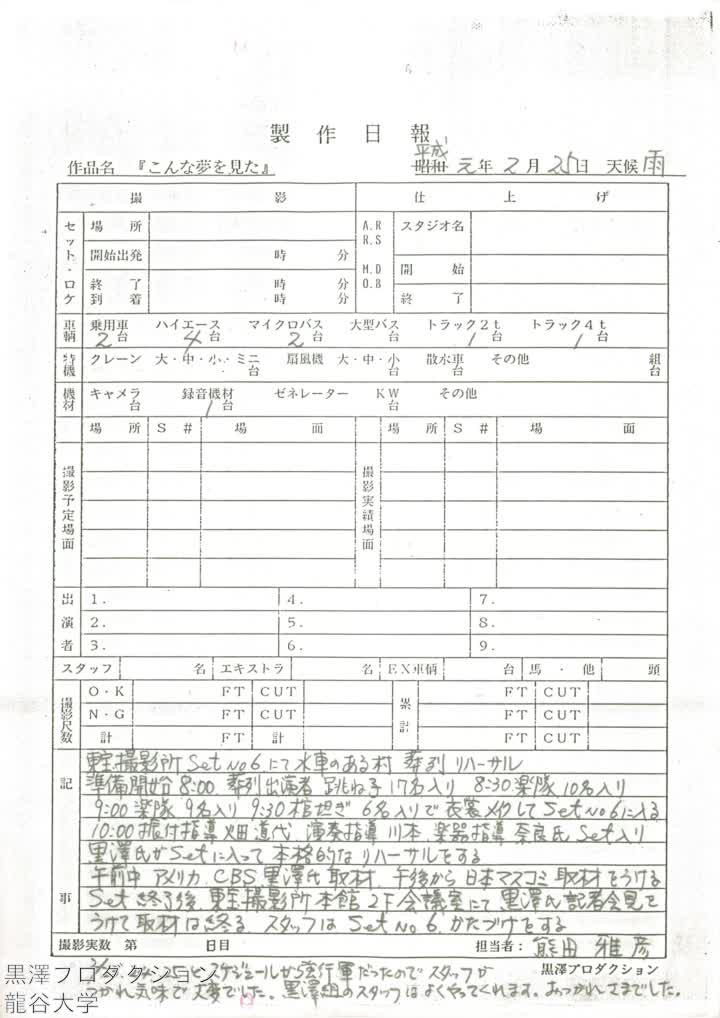 製作日報
作品名 『こんな夢を見た』 昭和 平成 元年 2月 25日 天候 雨
撮影 仕上げ
セット・ロケ 場所 A.R R.S スタジオ名
開始出発 時 分 M.D O.B 開始
終了 時 分 終了
到着 時 分
車輌 乗用車 2台 ハイエース 4台 マイクロバス 2台 大型バス 台 トラック2t 1台 トラック4t 1台
特機 クレーン 大・中・小・ミニ 台 扇風機 大・中・小 台 散水車 台 その他 組 台
機材 キャメラ 台 録音機材 1台 ゼネレーター KW 台 その他
場所 S# 場面 場所 S# 場面
撮影予定場面 撮影実績場面
出演者 1. 4. 7.
2. 5. 8.
3. 6. 9.
スタッフ 名 エキストラ 名 EX車輌 台 馬・他 頭
撮影尺数 O・K FT CUT 累計 FT CUT
N・G FT CUT FT CUT
計 FT CUT FT CUT
記事
東宝撮影所 Set No6 にて水車のある村 葬列 リハーサル
準備開始 8:00 葬列出演者 跳ね子 17名入り 8:30 楽隊 10名入り
9:00 楽隊 9名入り 9:30 棺担ぎ 6名入りで衣裳メイクして Set No6 に入る
10:00 振付指導 畑 道代、演奏指導 川本、楽器指導 奈良氏 Set入り
黒澤氏が Set に入って本格的なリハーサルをする
午前中 アメリカ、CBS 黒澤氏 取材、午後から日本マスコミ取材をうける
Set 終了後、東宝撮影所 本館 2F 会議室にて黒澤氏記者会見を
うけて取材は終る、スタッフは Set No6、かたづけをする
撮影実数 第 日目 担当者: 熊田 雅彦
黒澤プロダクション
スケジュールが強行軍だったのでスタッフが
つかれ気味で大変でした。黒澤組のスタッフはよくやってくれます。おつかれさまでした。
黒澤プロダクション
龍谷大学